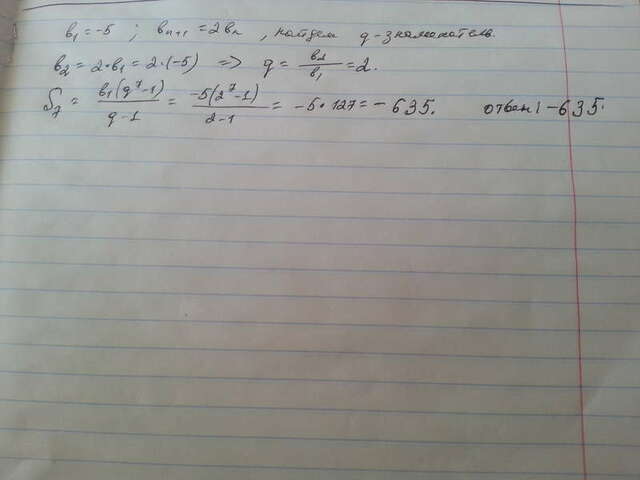 b₁ = -5 ; bₙ₊₁ = 2bₙ , найдем q-знаменатель.
b₂ = 2·b₁ = 2·(-5) => q = b₂/b₁ = 2.
S₇ = b₁(q⁷-1)/q-1 = -5(2⁷-1)/2-1 = -5·127 = -635. ответ: -635.